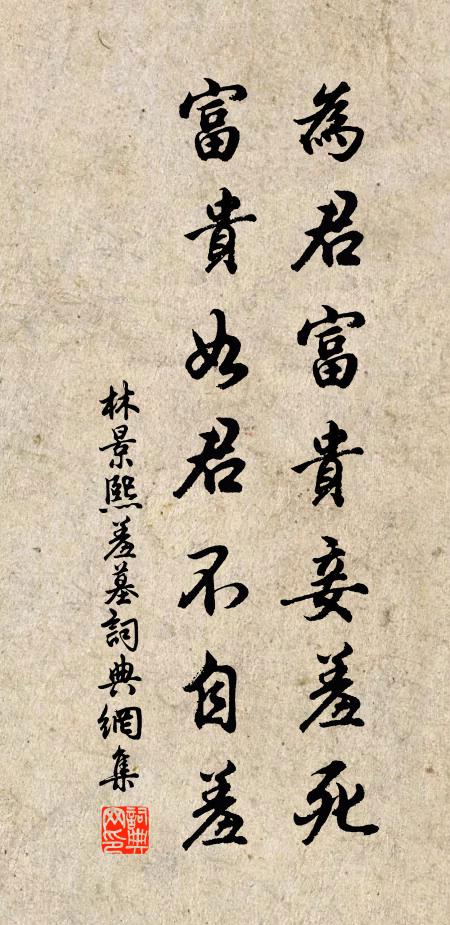 為君富貴妾羞死
富貴如君不自羞
林景熙羞墓詞典網集
詞典網印